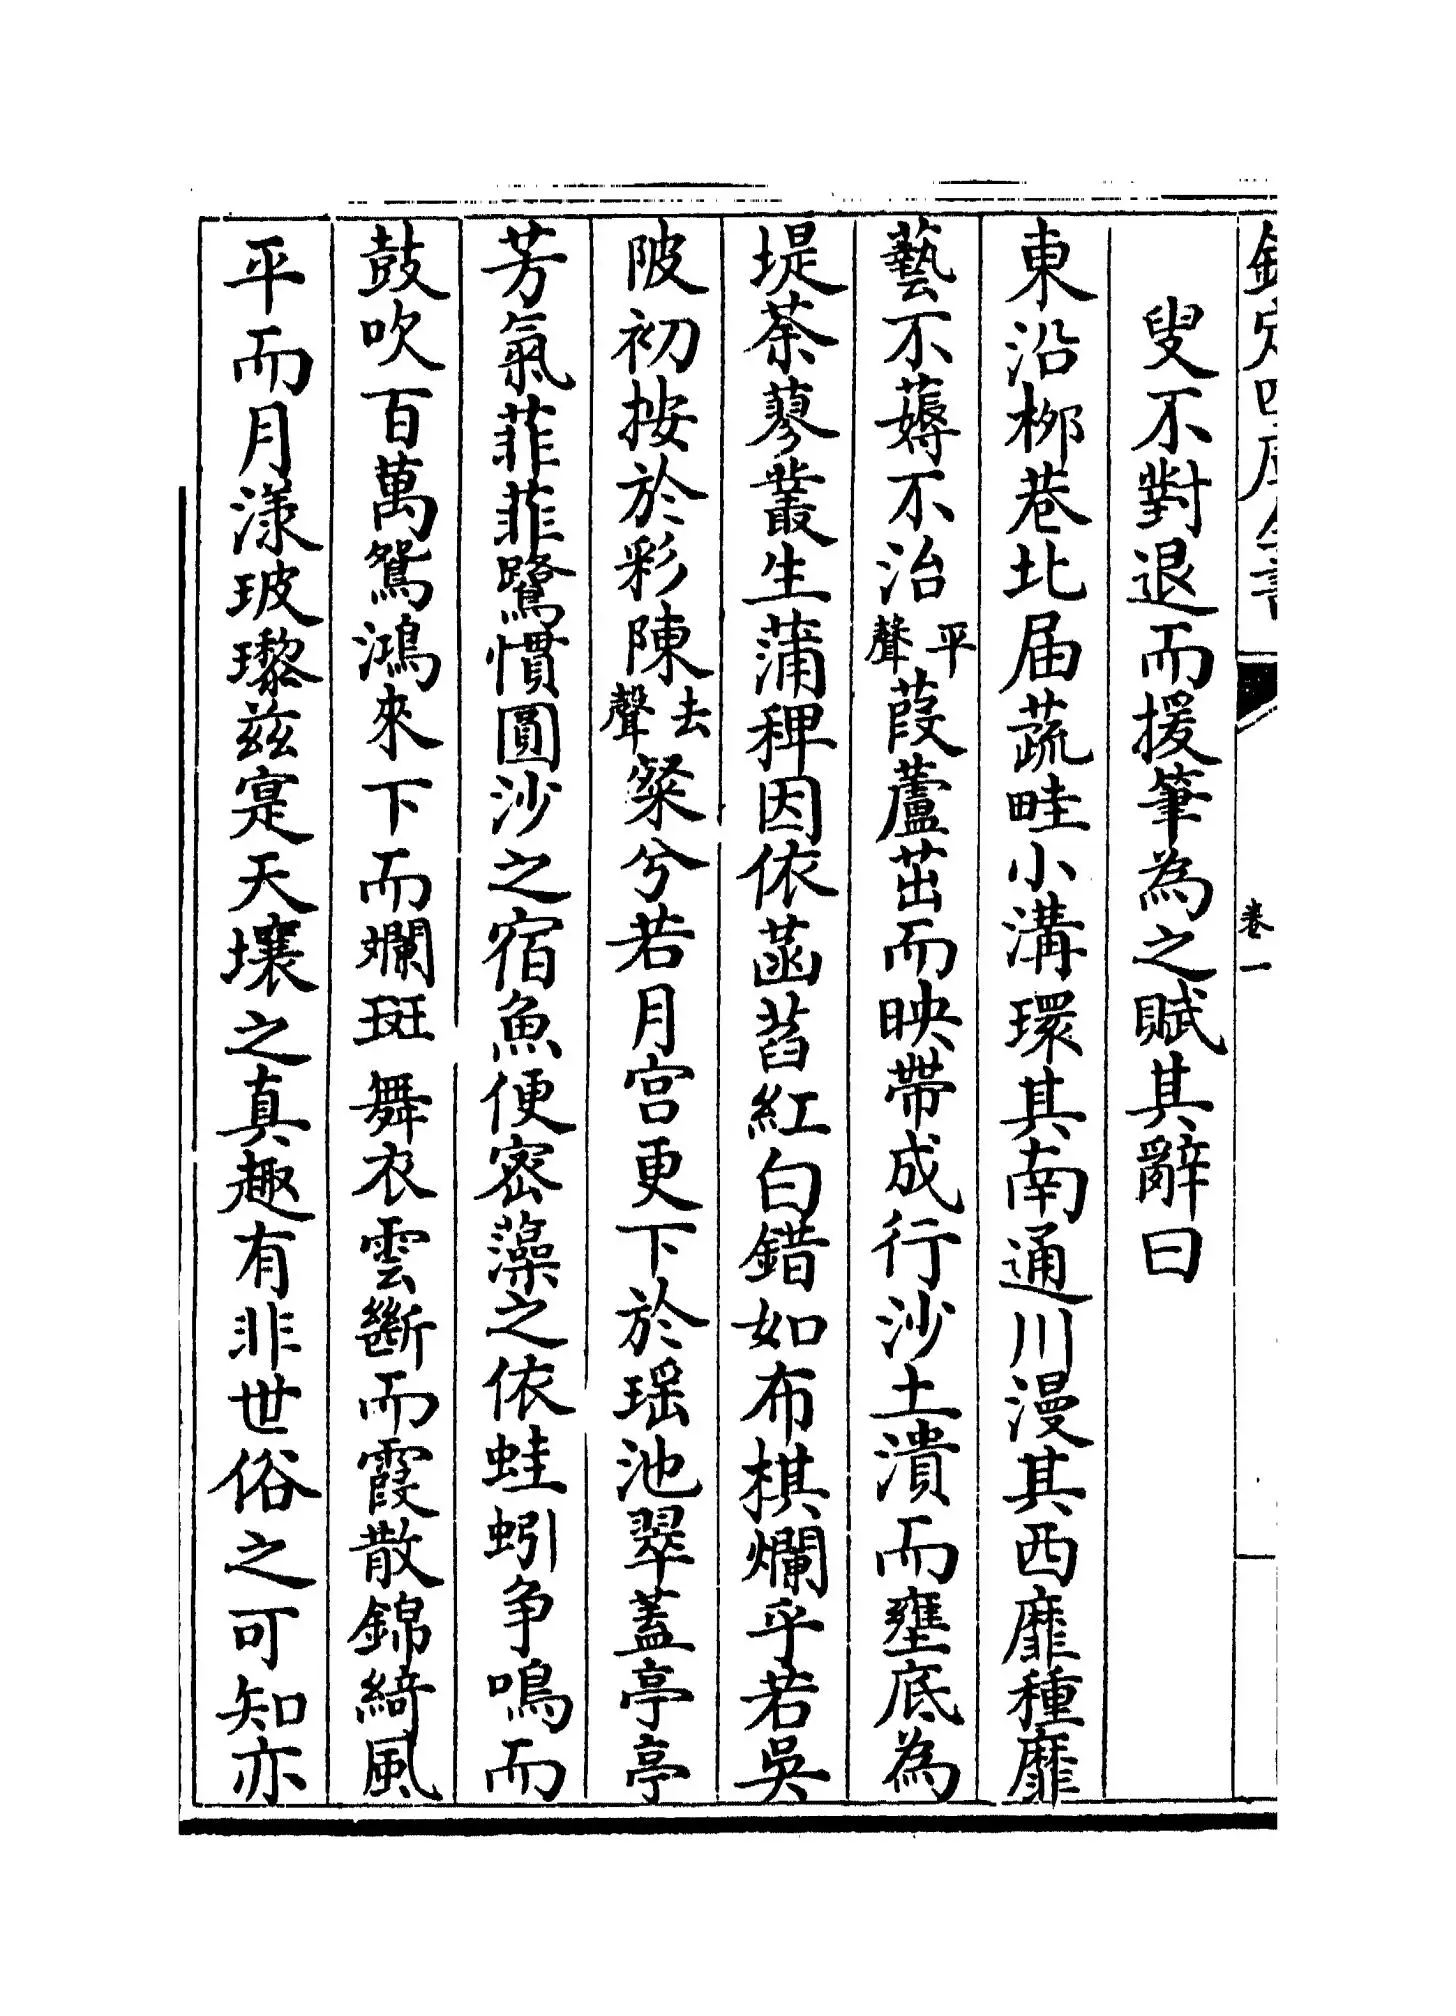 欽定四庫全書
卷一
叟不對退而援筆為之賦其辭曰
東沿栁巷北届蔬畦小溝環其南通川漫其西靡種靡
藝不薅不治平聲葭蘆茁而映帶成行沙土潰而壅底為
堤荼蓼叢生蒲稗因依菡萏紅白錯如布棋爛乎若吳
陂初按於彩陳去聲粲兮若月宫更下於瑶池翠蓋亭亭
芳氣菲菲鷺慣圓沙之宿魚便密藻之依蛙蚓争鳴而
鼓吹百萬鴛鴻來下而斕斑舞衣雲斷而霞散錦綺風
平而月漾玻瓈兹寔天壤之真趣有非世俗之可知亦